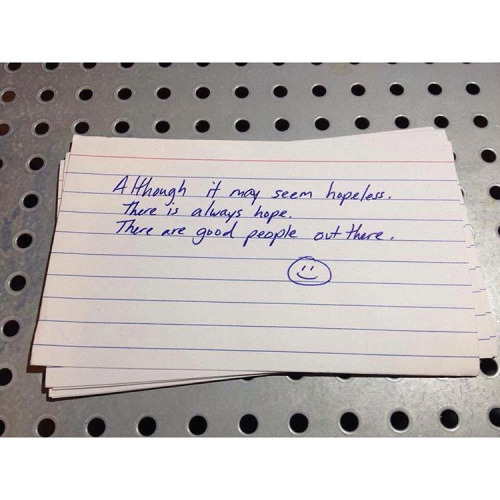 Although it may seem hopeless.
There is always hope.
There are good people out there.